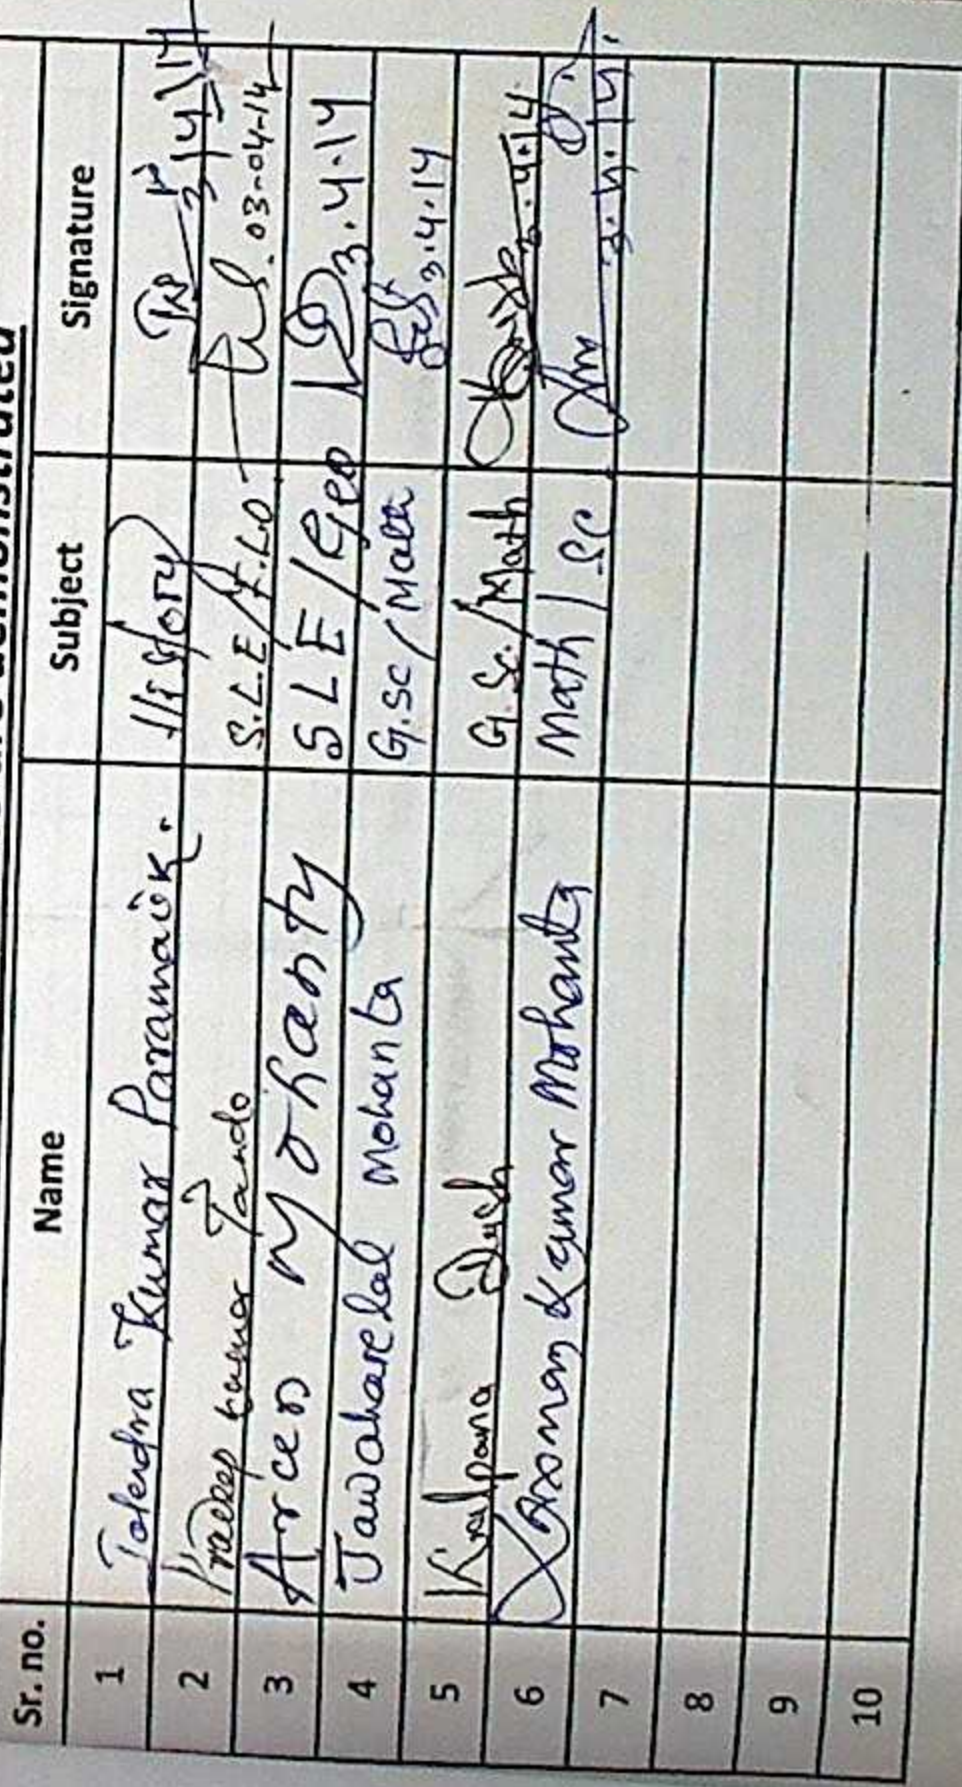 demonstrated
Sr. no. Name Subject Signature
1 Jotendra Kumar Paramaik. History 3/4/14
2 Pradeep Kumar Tando S.L.E/F.LO 03-04-14
3 Arcen Mohanty SLE/Geo 3.4.14
4 Jawaharelal Mohanta G.Sc/Math 3.4.14
5 Kalpana Dash G.Sc./Math 3.4.14
6 Laxoman Kumar Mohanta Math/Sc 3.4.14.
7
8
9
10